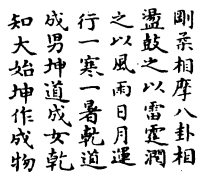 剛柔相摩八卦相
盪鼓之以雷霆潤
之以風雨日月運
行一寒一暑乾道
成男坤道成女乾
知大始坤作成物